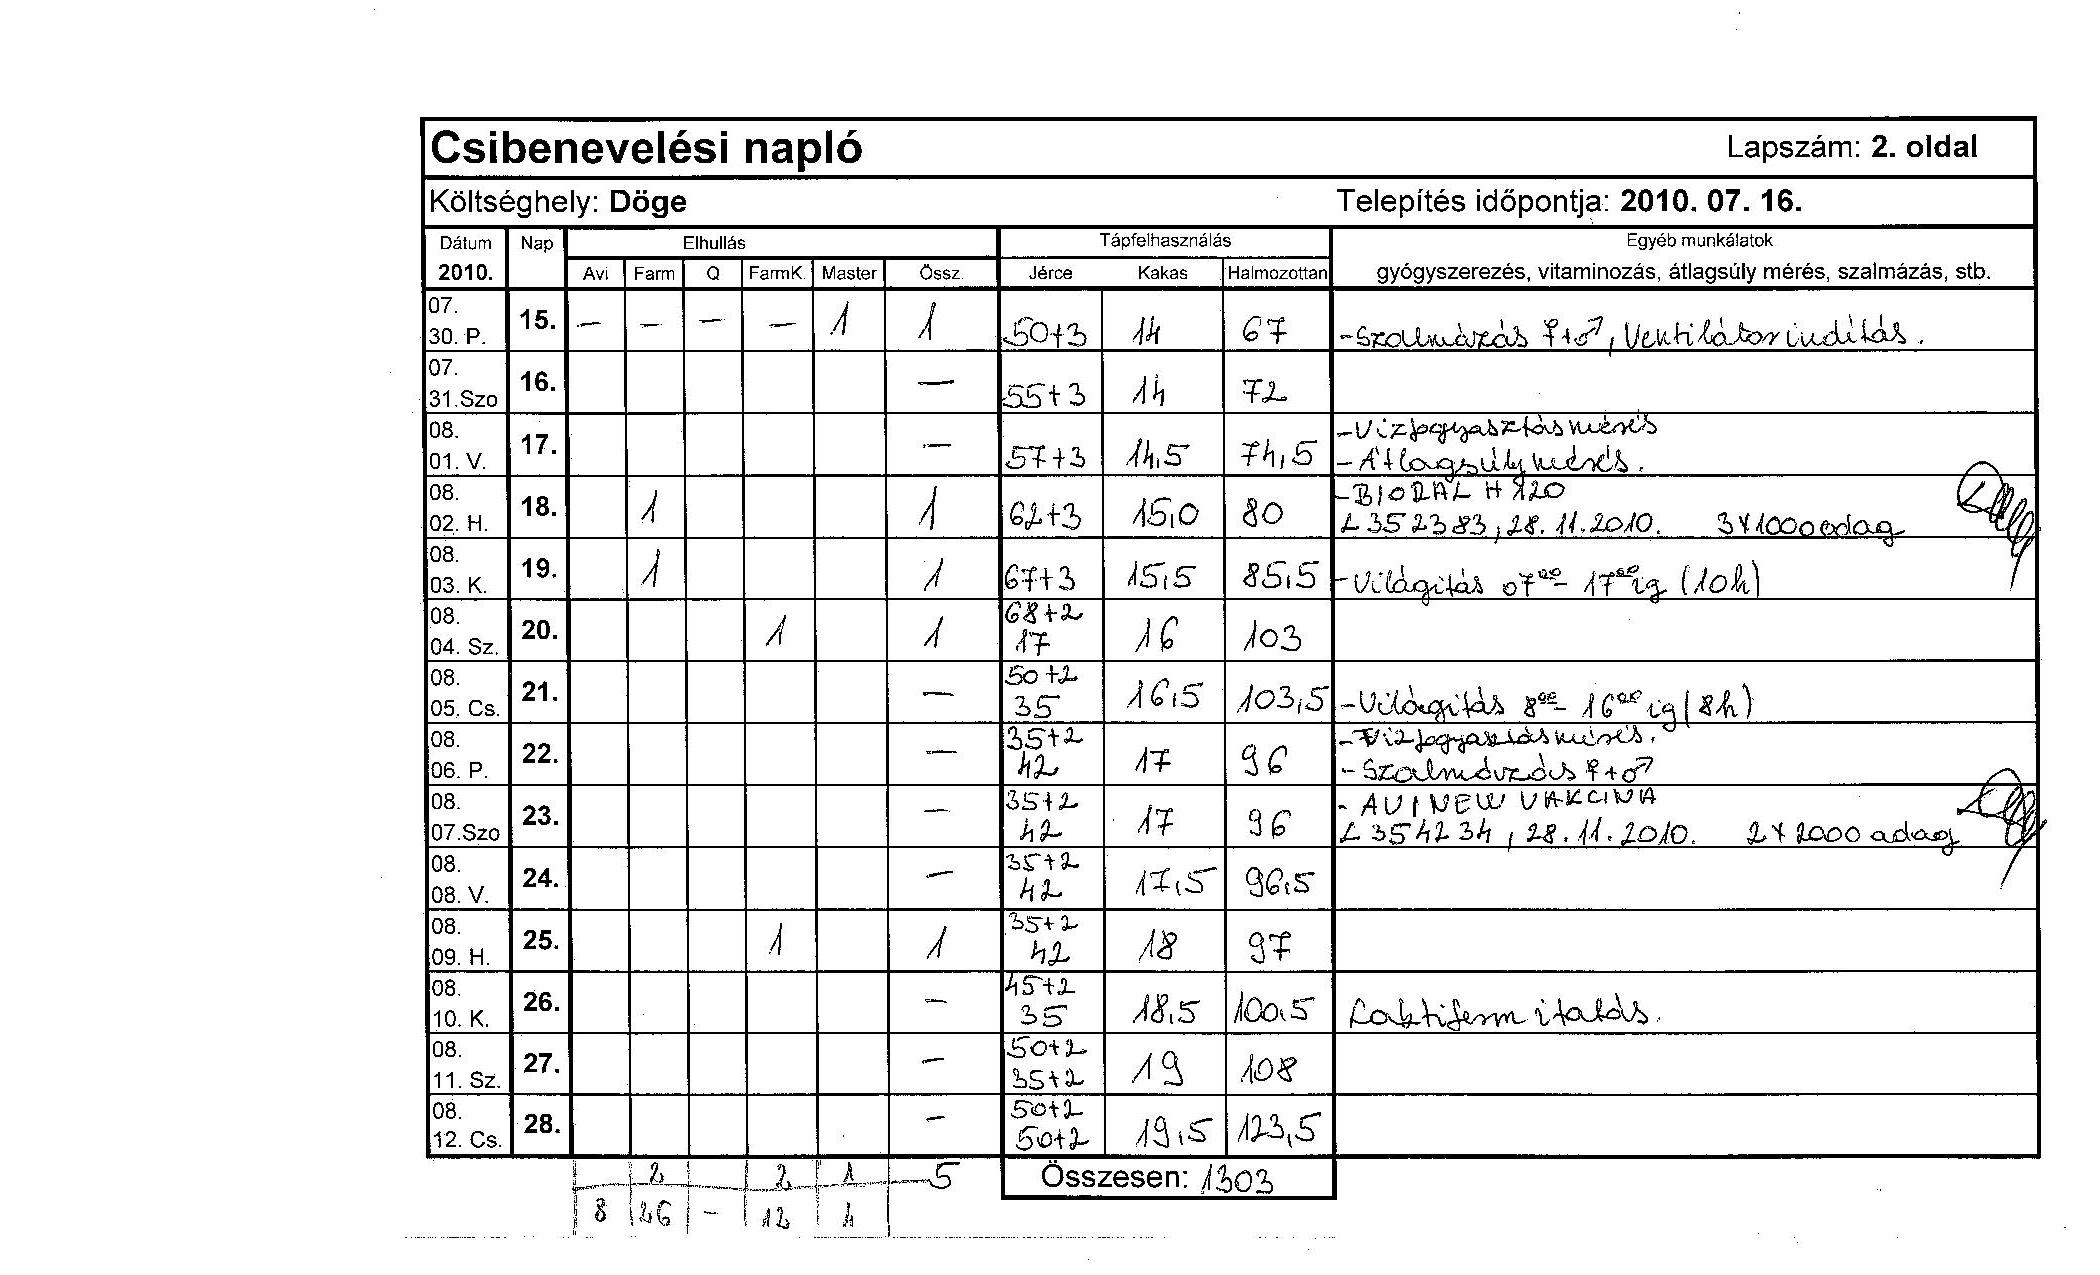 Csibenevelési napló Lapszám: 2. oldal
Költséghely: Döge Telepítés időpontja: 2010. 07. 16.
Dátum Nap Elhullás Tápfelhasználás Egyéb munkálatok
2010. Avi Farm Q FarmK. Master Össz. Jérce Kakas Halmozottan gyógyszerezés, vitaminozás, átlagsúly mérés, szalmázás, stb.
07. 30. P. 15. – – – – 1 1 50+3 14 67 -Szalmázás ♀+♂, Ventilátor indítás.
07. 31.Szo 16. – 55+3 14 72
08. 01. V. 17. – 57+3 14,5 74,5 -Vízfogyasztásmérés
-Átlagsúlymérés.
08. 02. H. 18. 1 1 62+3 15,0 80 -BIORAL H 120
L 352383, 28.11.2010. 3x1000 adag
08. 03. K. 19. 1 1 67+3 15,5 85,5 -Világítás 07⁰⁰- 17⁰⁰ig (10h)
08. 04. Sz. 20. 1 1 68+2 17 16 103
08. 05. Cs. 21. – 50+2 35 16,5 103,5 -Világítás 8⁰⁰- 16⁰⁰ ig (8h)
08. 06. P. 22. – 35+2 42 17 96 -Vízfogyasztásmérés.
- Szalmázás ♀+♂
08. 07.Szo 23. – 35+2 42 17 96 - AVINEW VAKCINA
L 354234, 28.11.2010. 2x2000 adag
08. 08. V. 24. – 35+2 42 17,5 96,5
08. 09. H. 25. 1 1 35+2 42 18 97
08. 10. K. 26. – 45+2 35 18,5 100,5 Laktiferm itatás.
08. 11. Sz. 27. – 50+2 35+2 19 108
08. 12. Cs. 28. – 50+2 50+2 19,5 123,5
2 2 1 5 Összesen: 1303
8 26 – 12 4